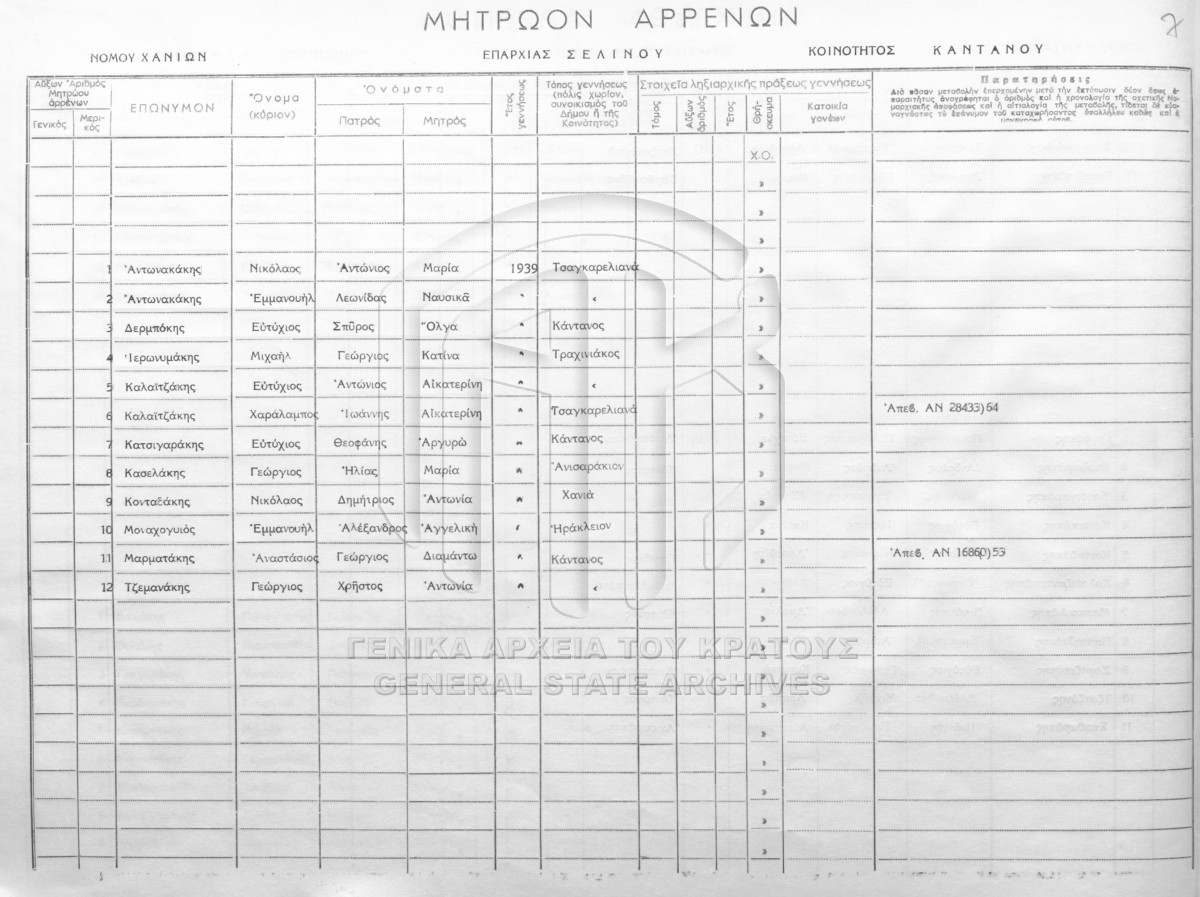 ΜΗΤΡΩΟΝ ΑΡΡΕΝΩΝ
7
ΝΟΜΟΥ ΧΑΝΙΩΝ ΕΠΑΡΧΙΑΣ ΣΕΛΙΝΟΥ ΚΟΙΝΟΤΗΤΟΣ ΚΑΝΤΑΝΟΥ
Αὔξων Ἀριθμός Μητρώου ἀρρένων
Γενικός Μερικός
ΕΠΩΝΥΜΟΝ
Ὄνομα (κύριον)
Ὀνόματα
Πατρός Μητρός
Ἔτος γεννήσεως
Τόπος γεννήσεως (πόλις χωρίον, συνοικισμός τοῦ Δήμου ἢ τῆς Κοινότητος)
Στοιχεῖα ληξιαρχικῆς πράξεως γεννήσεως
Τόμος Αὔξων ἀριθμός Ἔτος Θρήσκευμα Κατοικία γονέων
Παρατηρήσεις
Διὰ πᾶσαν μεταβολὴν ἐπερχομένην μετὰ τὴν ἐκτύπωσιν δέον ὅπως ἀπαραιτήτως ἀναγράφηται ὁ ἀριθμὸς καὶ ἡ χρονολογία τῆς σχετικῆς Νομαρχιακῆς ἀποφάσεως καὶ ἡ αἰτιολογία τῆς μεταβολῆς,
Χ.Ο.
»
»
»
1 Ἀντωνακάκης Νικόλαος Ἀντώνιος Μαρία 1939 Τσαγκαρελιανά »
2 Ἀντωνακάκης Ἐμμανουὴλ Λεωνίδας Ναυσικᾶ " " »
3 Δερμπόκης Εὐτύχιος Σπῦρος Ὄλγα " Κάντανος »
4 Ἱερωνυμάκης Μιχαὴλ Γεώργιος Κατίνα " Τραχινιάκος »
5 Καλαϊτζάκης Εὐτύχιος Ἀντώνιος Αἰκατερίνη " " »
6 Καλαϊτζάκης Χαράλαμπος Ἰωάννης Αἰκατερίνη " Τσαγκαρελιανά » Ἀπεβ. ΑΝ 28433)64
7 Κατσιγαράκης Εὐτύχιος Θεοφάνης Ἀργυρώ " Κάντανος »
8 Κασελάκης Γεώργιος Ἠλίας Μαρία " Ἀνισαράκιον »
9 Κονταξάκης Νικόλαος Δημήτριος Ἀντωνία " Χανιὰ »
10 Μοναχογυιὸς Ἐμμανουὴλ Ἀλέξανδρος Ἀγγελικὴ " Ἡράκλειον »
11 Μαρματάκης Ἀναστάσιος Γεώργιος Διαμάντω " Κάντανος » Ἀπεβ. ΑΝ 16860)53
12 Τζεμανάκης Γεώργιος Χρῆστος Ἀντωνία " " »
»
»
»
»
»
»
»
»
»
ΓΕΝΙΚΑ ΑΡΧΕΙΑ ΤΟΥ ΚΡΑΤΟΥΣ
GENERAL STATE ARCHIVES